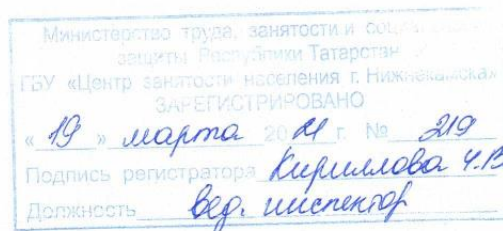 Министерство труда, занятости и социальной
защиты Республики Татарстан
ГБУ «Центр занятости населения г. Нижнекамска»
ЗАРЕГИСТРИРОВАНО
« 19 » марта 2021 г. № 219
Подпись регистратора Кириллова Ч.В
Должность вед. инспектор